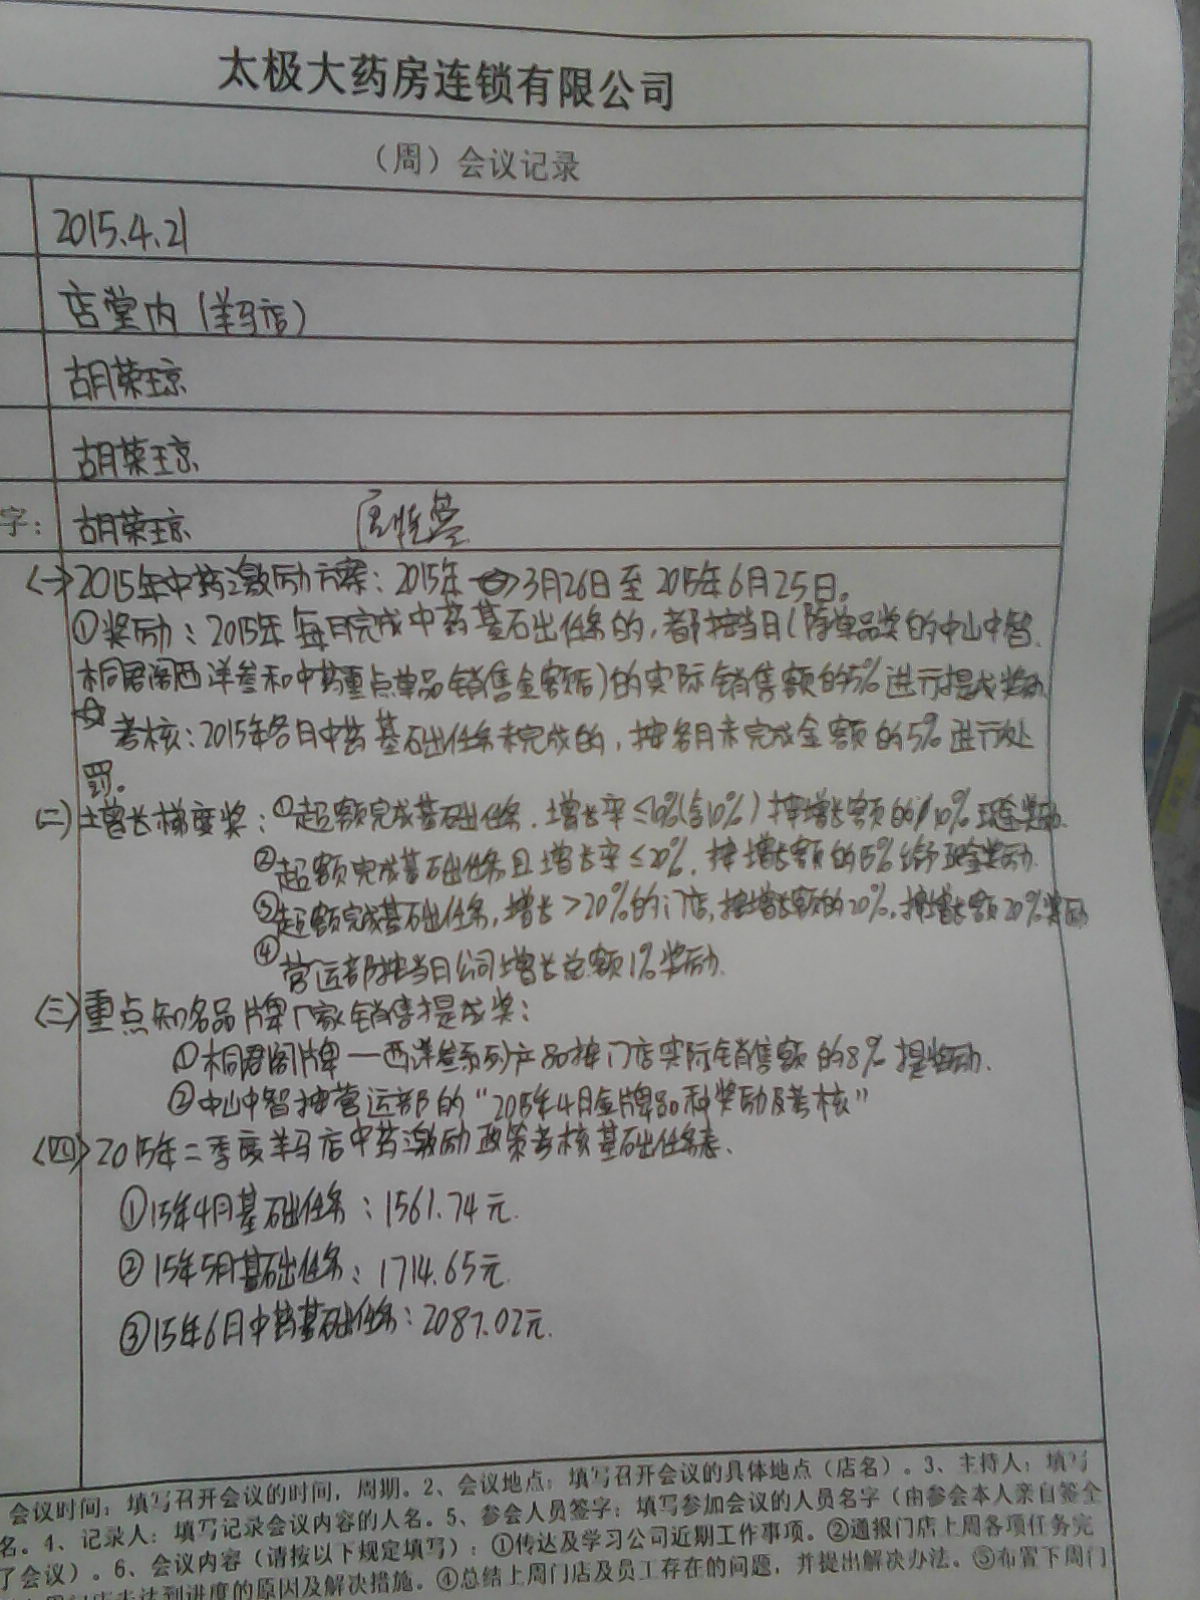 太极大药房连锁有限公司
（周）会议记录
2015.4.21
店堂内（羊马店）
胡荣琼
胡荣琼
字：胡荣琼
〈一〉2015年中药激励方案：2015年3月26日至2015年6月25日。
①奖励：2015年每月完成中药基础任务的，都按当月（除单品奖的中山中智、
桐君阁西洋参和中药重点单品销售金额后）的实际销售额的5%进行提成奖励
☆考核：2015年各月中药基础任务未完成的，按各月未完成金额的5%进行处
罚。
〈二〉增长梯度奖：①超额完成基础任务．增长率≤10%（含10%）按增长额的10%现金奖励．
②超额完成基础任务且增长率≤20%，按增长额的15%给予现金奖励．
③超额完成基础任务，增长>20%的门店，按增长额的20%，按增长额20%奖励
④营运部按当月公司增长总额1%奖励．
〈三〉重点知名品牌厂家销售提成奖：
①桐君阁牌—西洋参系列产品按门店实际销售额的8%提奖励．
②中山中智按营运部的“2015年4月金牌品种奖励及考核”
〈四〉2015年二季度羊马店中药激励政策考核基础任务表．
①15年4月基础任务：1561.74元．
②15年5月基础任务：1714.65元．
③15年6月中药基础任务：2087.02元．
会议时间：填写召开会议的时间，周期。2、会议地点：填写召开会议的具体地点（店名）。3、主持人：填写
名。4、记录人：填写记录会议内容的人名。5、参会人员签字：填写参加会议的人员名字（由参会本人亲自签全
了会议）。6、会议内容（请按以下规定填写）：①传达及学习公司近期工作事项。②通报门店上周各项任务完
达到进度的原因及解决措施。④总结上周门店及员工存在的问题，并提出解决办法。⑤布置下周门